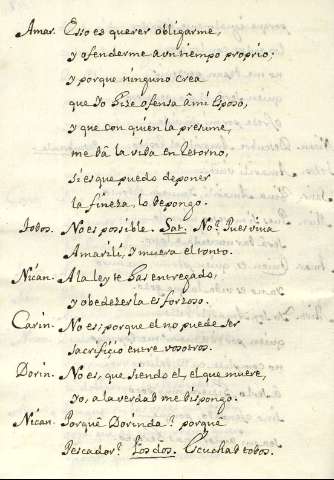 Amar. Esso es querer obligarme,
y ofenderme a un tiempo proprio;
y porque ninguno crea
que Yo hize ofensa â mi esposo,
y que con quien la presume,
me dâ la vida en retorno,
si es que puedo deponer
la fineza, lo depongo.
todos. No es possible. Sat. No? Pues viva
Amarili, y muera el tonto.
Nican. A la ley te has entregado,
y obedezerla es forzoso.
Carin. No es; porque el no puede ser
sacrificio entre vosotros.
Dorin. No es, que siendo el, el que muere,
yo, a la verdad me dispongo.
Nican. Porquê Dorinda? porquê
Pescador? Los dos. Escuchad todos.